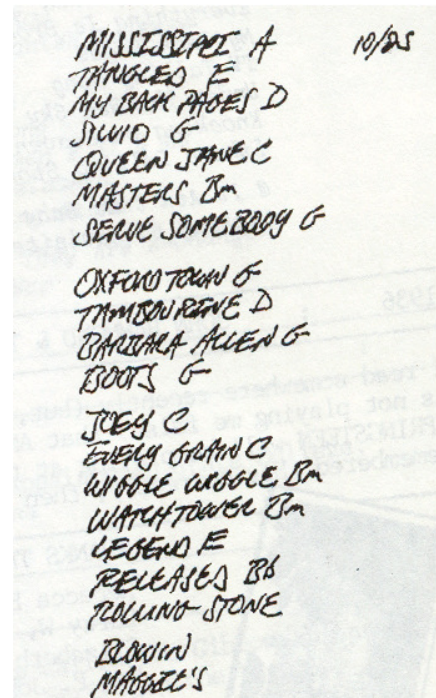 MISSISSIPPI A 10/25
TANGLED E
MY BACK PAGES D
SILVIO G
QUEEN JANE C
MASTERS Bm
SERVE SOMEBODY G
OXFORD TOWN G
TAMBOURINE D
BARBARA ALLEN G
BOOTS G
JOEY C
EVERY GRAIN C
WIGGLE WIGGLE Bm
WATCHTOWER Bm
LEGEND E
RELEASED Bb
ROLLING STONE
BLOWIN
MAGGIE'S